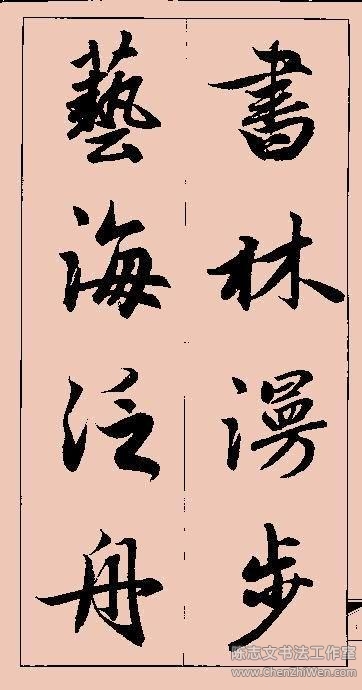 書林漫步
藝海泛舟
陈志文书法工作室
www.ChenZhiWen.com